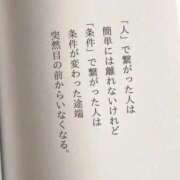 「人」で繋がった人は
簡単には離れないけれど
「条件」で繋がった人は
条件が変わった途端
突然目の前からいなくなる。